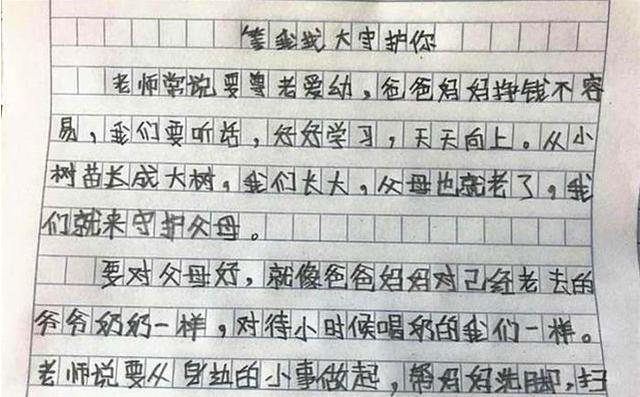 等我我大守护你
老师常说要尊老爱幼，爸爸妈妈挣钱不容
易，我们要听话，好好学习，天天向上。从小
树苗长成大树，我们长大，父母也就老了，我
们就来守护父母。
要对父母好，就像爸爸妈妈对己经老去的
爷爷奶奶一样，对待小时候唱奶的我们一样。
老师说要从身边的小事做起，帮妈妈洗脚，扫